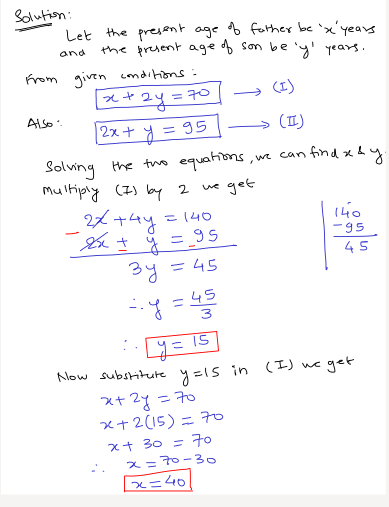 Solution:
Let the present age of father be 'x' years
and the present age of son be 'y' years.
From given conditions:
x + 2y = 70 → (I)
Also:
2x + y = 95 → (II)
Solving the two equations, we can find x & y.
Multiply (I) by 2 we get
2x + 4y = 140
- 2x + y = 95
- -
3y = 45
∴ y = 45/3
∴ y = 15
140
-95
45
Now substitute y=15 in (I) we get
x + 2y = 70
x + 2(15) = 70
x + 30 = 70
∴ x = 70-30
x = 40